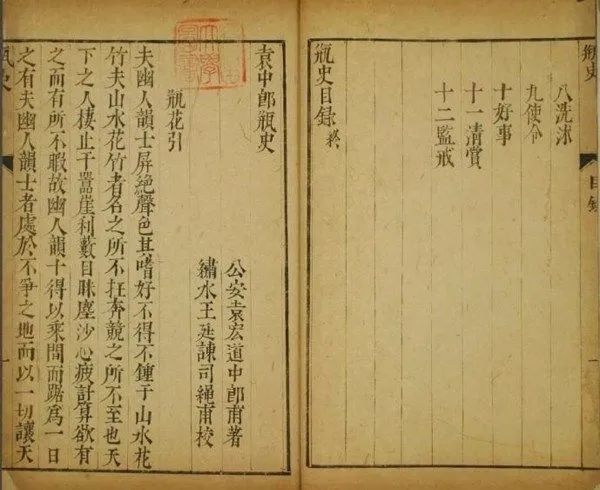 瓶史 目錄 一
八洗沐
九使令
十好事
十一清賞
十二監戒
瓶史目錄終
袁中郎瓶史
公安袁宏道中郎甫著
繡水王廷諫司繩甫校
瓶花引
夫幽人韻士屏絕聲色其嗜好不得不鍾于山水花
竹夫山水花竹者名之所不在奔競之所不至也天
下之人棲止于囂崖利藪目眯塵沙心疲計算欲有
之而有所不暇故幽人韻士得以乘間而踞爲一日
之有夫幽人韻士者處於不爭之地而以一切讓天
瓶史 一